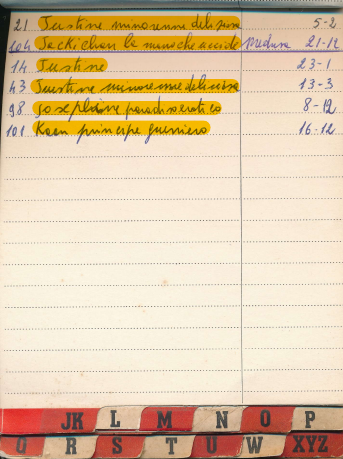 21 Justine minorenne deliziosa 5-2
104 Jackichan la mano che uccide Predusa 21-12
14 Justine 23-1
43 Justine minorenne deliziosa 13-3
98 Josephine paradiso erotico 8-12
101 Kaan principe guerriero 16-12
JK L M N O P
Q R S T U W XYZ